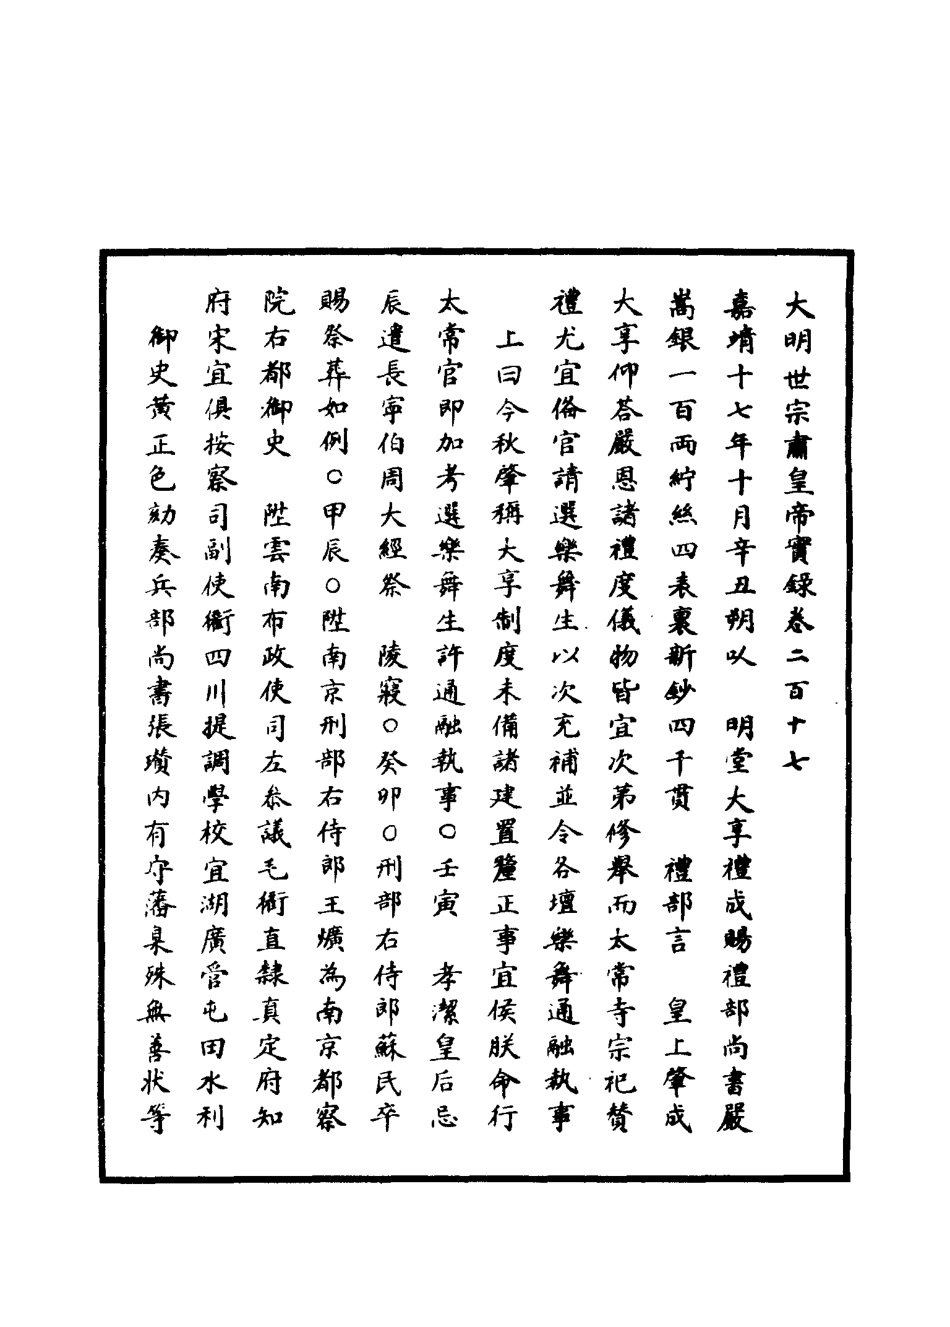 大明世宗肅皇帝實錄卷二百十七
嘉靖十七年十月辛丑朔以　明堂大享禮成賜禮部尚書嚴
嵩銀一百兩紵絲四表裏新鈔四千貫　禮部言　皇上肇成
大享仰荅嚴恩諸禮度儀物皆宜次第修舉而太常寺宗祀贊
禮尤宜俻官請選樂舞生以次充補並令各壇樂舞通融執事
上曰今秋肇稱大享制度未備諸建置釐正事宜侯朕命行
太常官即加考選樂舞生許通融執事○壬寅　孝潔皇后忌
辰遣長寧伯周大經祭　陵寢○癸卯○刑部右侍郎蘇民卒
賜祭葬如例○甲辰○陞南京刑部右侍郎王爌為南京都察
院右都御史　陞雲南布政使司左叅議毛衢直隸真定府知
府宋宜俱按察司副使衢四川提調學校宜湖廣管屯田水利
御史黃正色劾奏兵部尚書張瓚內有守藩臬殊無善狀等